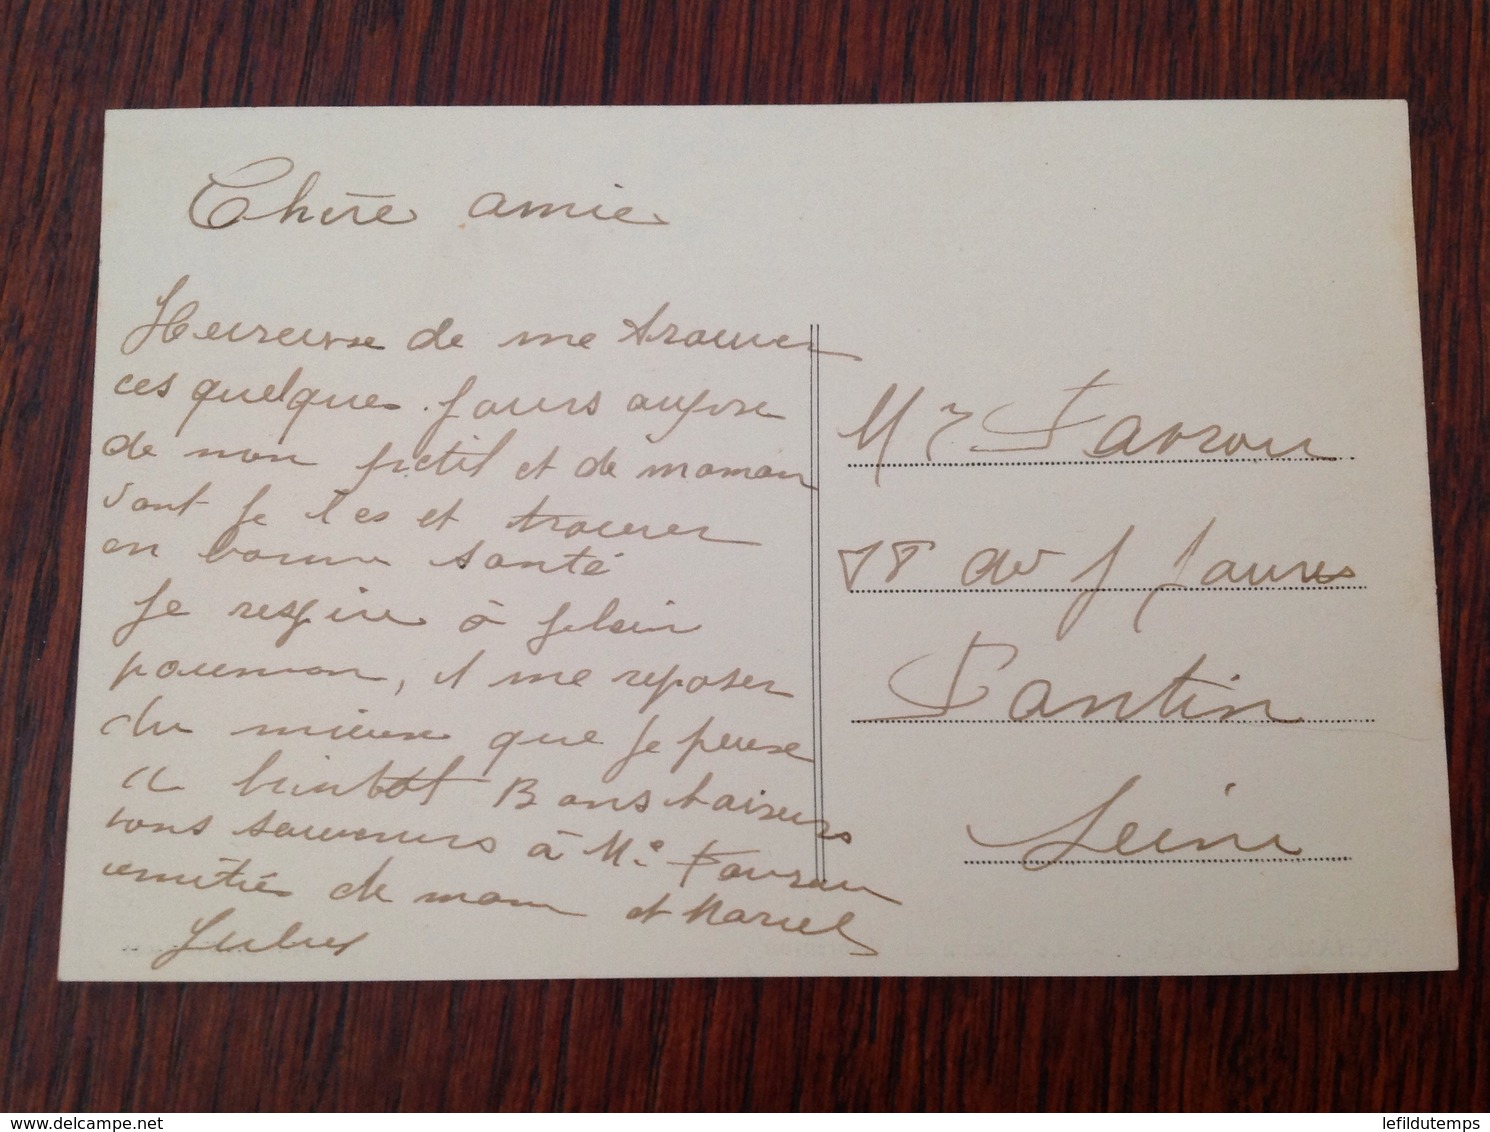 Chère amie
Heureuse de me trouver
ces quelques jours aupres
de mon petit et de maman
dont je les et trouver
en bonne santé
Je respire à plein
poumon, et me reposer
du mieux que je peuse
a bientot Bons baisers
bons souvenirs à Me Favrou
amitiés de mam et Marcel
Mr Favrou
78 av J Jaures
Pantin
Seine
lefildutemps
delcampe.net